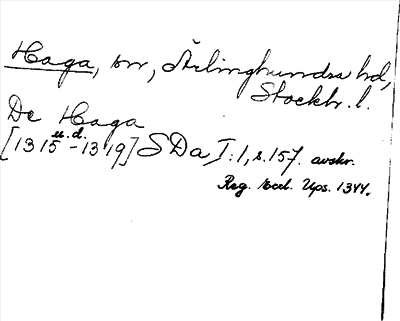 Haga, sn, Ärlinghundra hd,
Stockh. l.
De Haga
u. d.
[1315 - 1319] SDa I:1, s. 157. avskr.
Reg. Eccl. Ups. 1344.